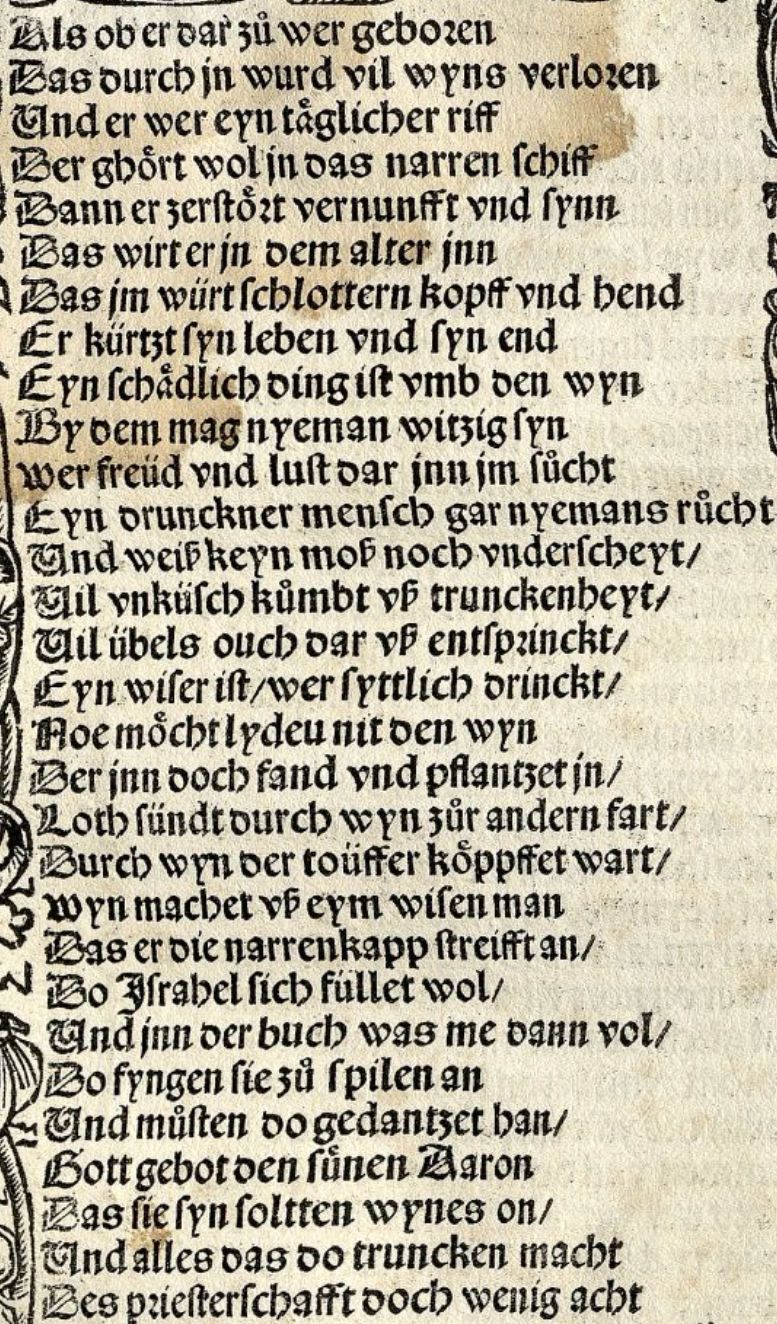 Als ob er dar zuͦ wer geboren
Das durch jn wurd vil wyns verloren
Und er wer eyn taͤglicher riff
Der ghoͤrt wol jn das narren schiff
Dann er zerstoͤrt vernunfft vnd synn
Das wirt er jn dem alter jnn
Das jm würt schlottern kopff vnd hend
Er kürtzt syn leben vnd syn end
Eyn schaͤdlich ding ist vmb den wyn
By dem mag nyeman witzig syn
wer freüd vnd lust dar jnn jm suͦcht
Eyn drunckner mensch gar nyemans ruͦcht
Und weiß keyn moß noch vnderscheyt/
Vil vnküsch kuͦmbt vß trunckenheyt/
Vil übels ouch dar vß entsprinckt/
Eyn wiser ist/wer syttlich drinckt/
Noe moͤcht lydeu nit den wyn
Der jnn doch fand vnd pflantzet jn/
Loth sündt durch wyn zuͦr andern fart/
Durch wyn der toüffer koͤppffet wart/
wyn machet vß eym wisen man
Das er die narrenkapp streifft an/
Do Israhel sich füllet wol/
Und jnn der buch was me dann vol/
Do fyngen sie zuͦ spilen an
Und muͦsten do gedantzet han/
Gott gebot den suͤnen Aaron
Das sie syn soltten wynes on/
Und alles das do truncken macht
Des priesterschafft doch wenig acht